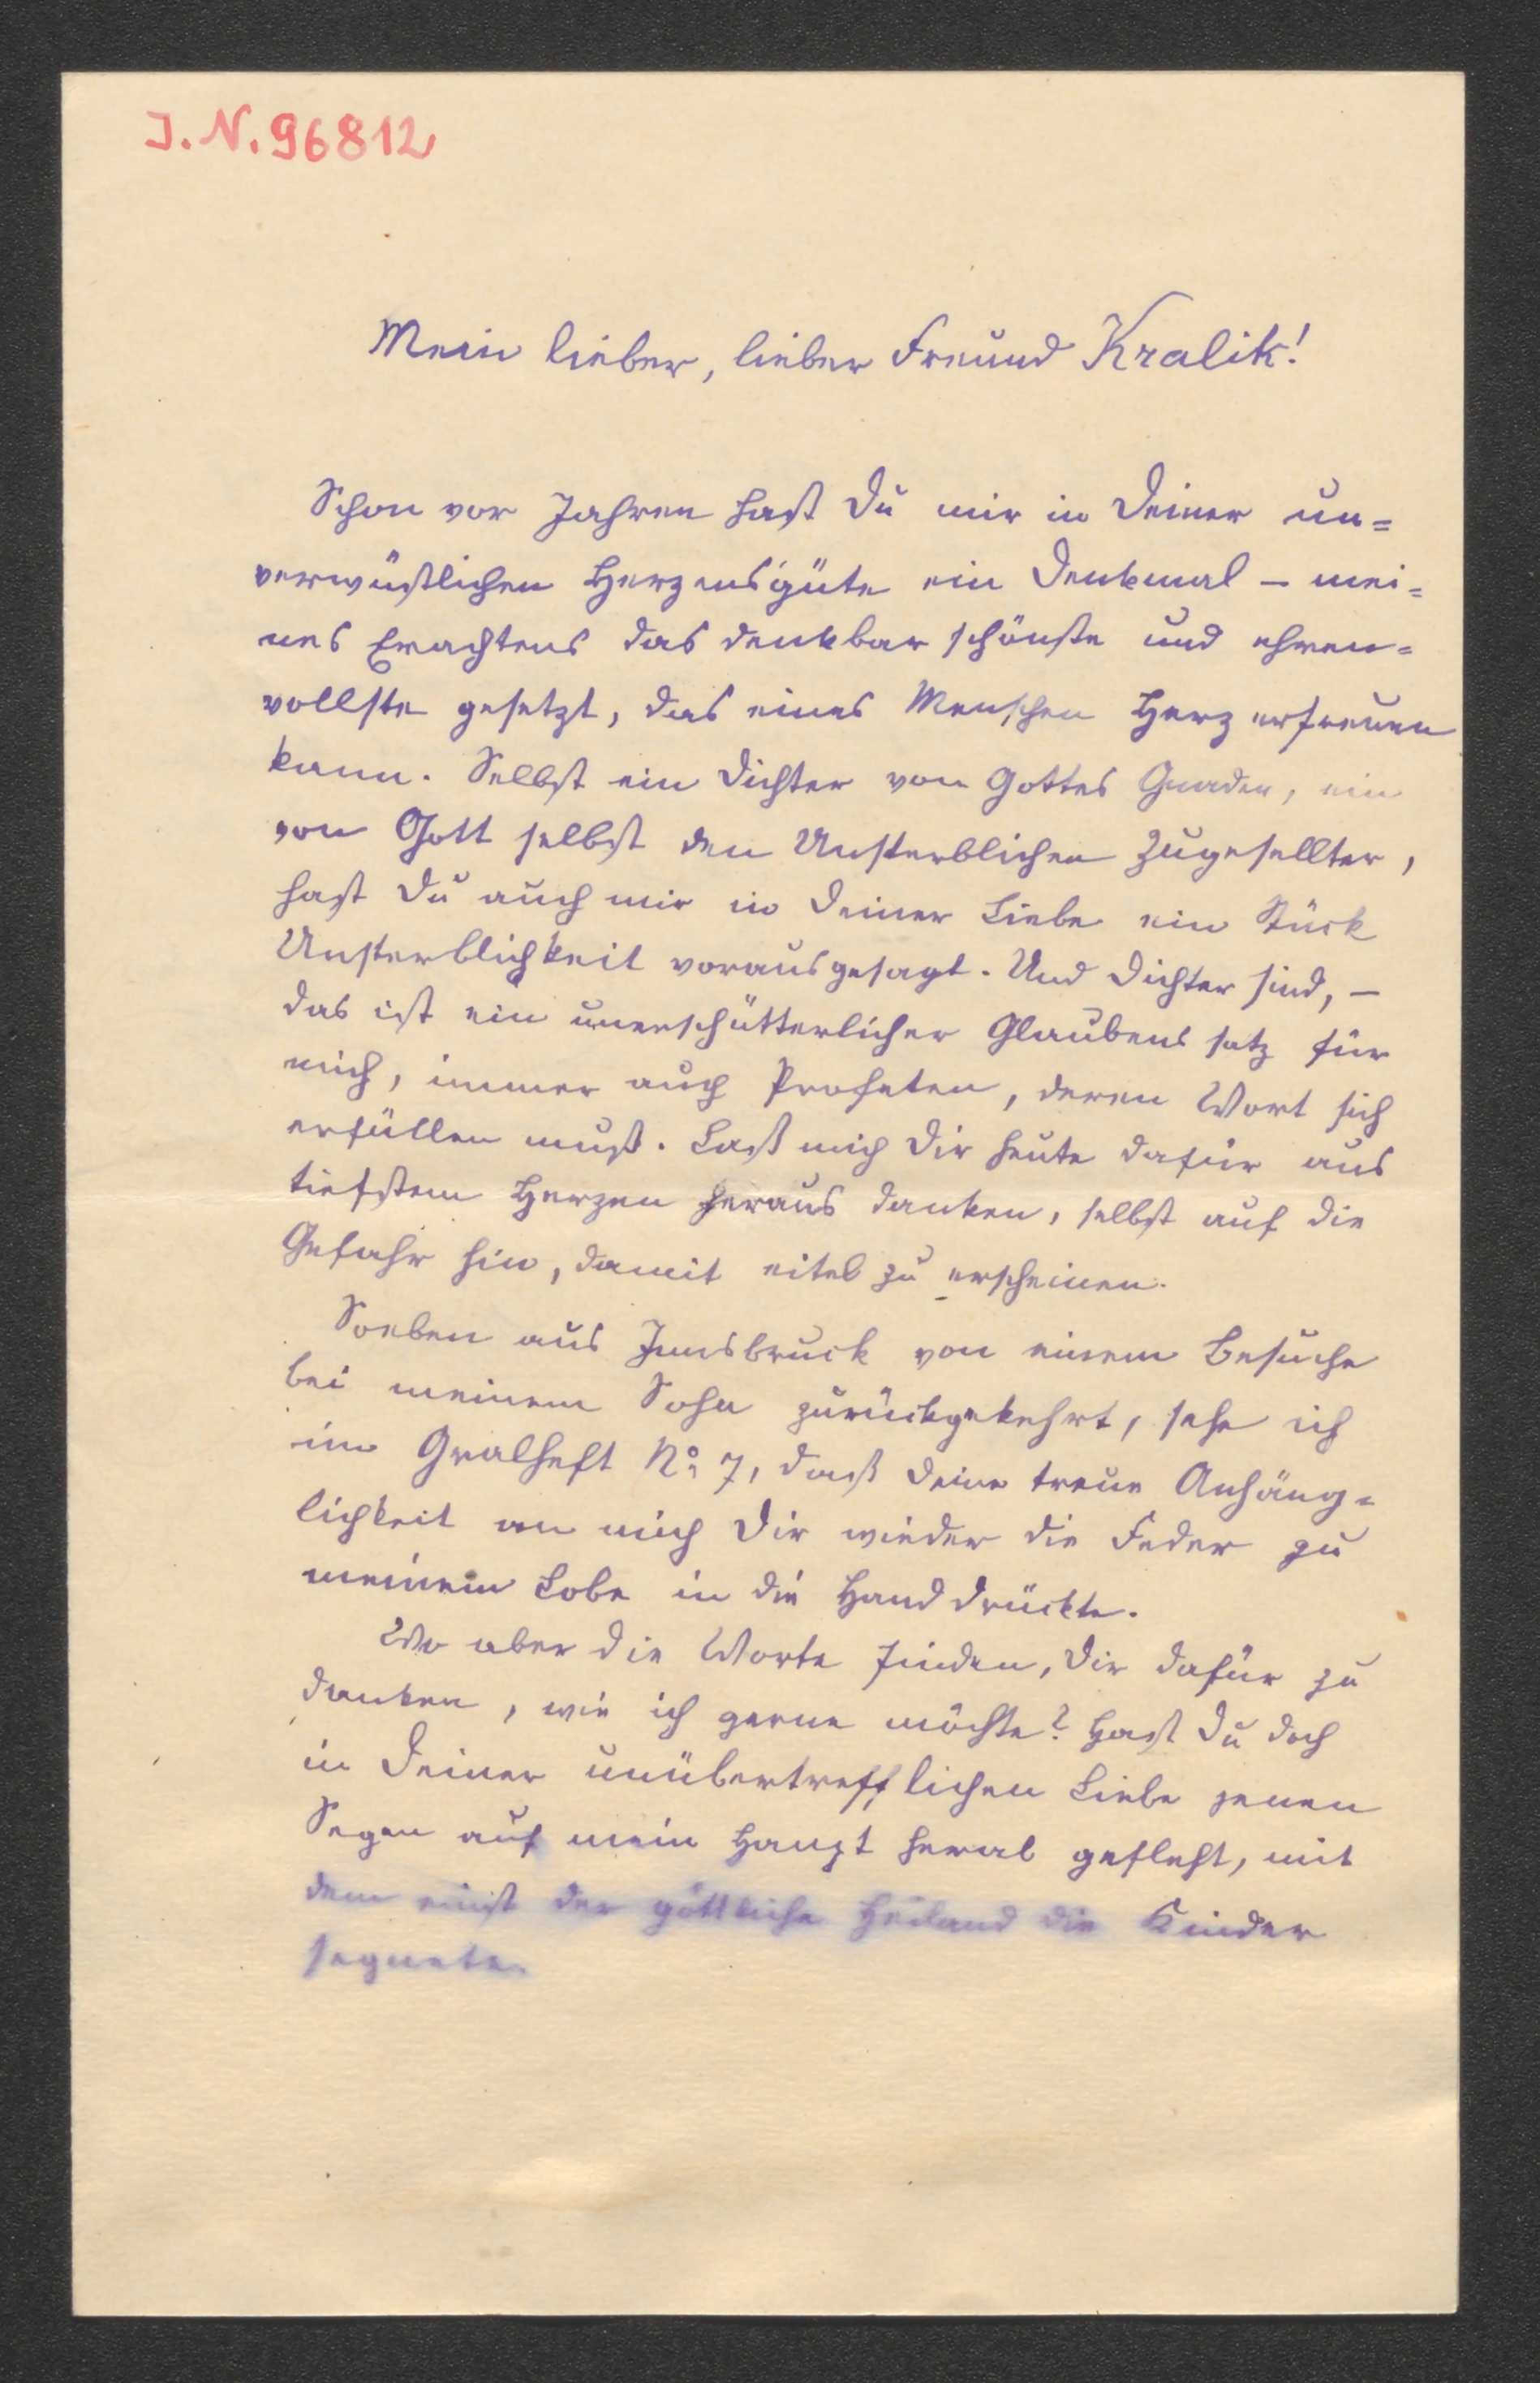 J. N. 96812
Mein lieber, lieber Freund Kralik!
Schon vor Jahren hast Du mir in Deiner un=
verwüstlichen Herzensgüte ein Denkmal – mei=
nes Erachtens das denkbar schönste und ehren=
vollste gesetzt, das eines Menschen Herz erfreuen
kann. Selbst ein Dichter von Gottes Gnaden, ein
von Gott selbst den Unsterblichen Zugesellter,
hast Du auch mir in Deiner Liebe ein Stück
Unsterblichkeit vorausgesagt. Und Dichter sind, –
das ist ein unerschütterlicher Glaubenssatz für
mich, immer auch Profeten, deren Wort sich
erfüllen muß. Laß mich Dir heute dafür aus
tiefstem Herzen heraus danken, selbst auf die
Gefahr hin, damit eitel zu erscheinen.
Soeben aus Innsbruck von einem Besuche
bei meinem Sohn zurückgekehrt, sehe ich
im Gralheft No 7, daß Deine treue Anhäng=
lichkeit an mich Dir wieder die Feder zu
meinem Lobe in die Hand drückte.
Wo aber die Worte finden, Dir dafür zu
danken, wie ich gerne möchte? Hast Du doch
in Deiner unübertrefflichen Liebe jenen
Segen auf mein Haupt herab gefleht, mit
dem einst der göttliche Heiland die Kinder
segnete.